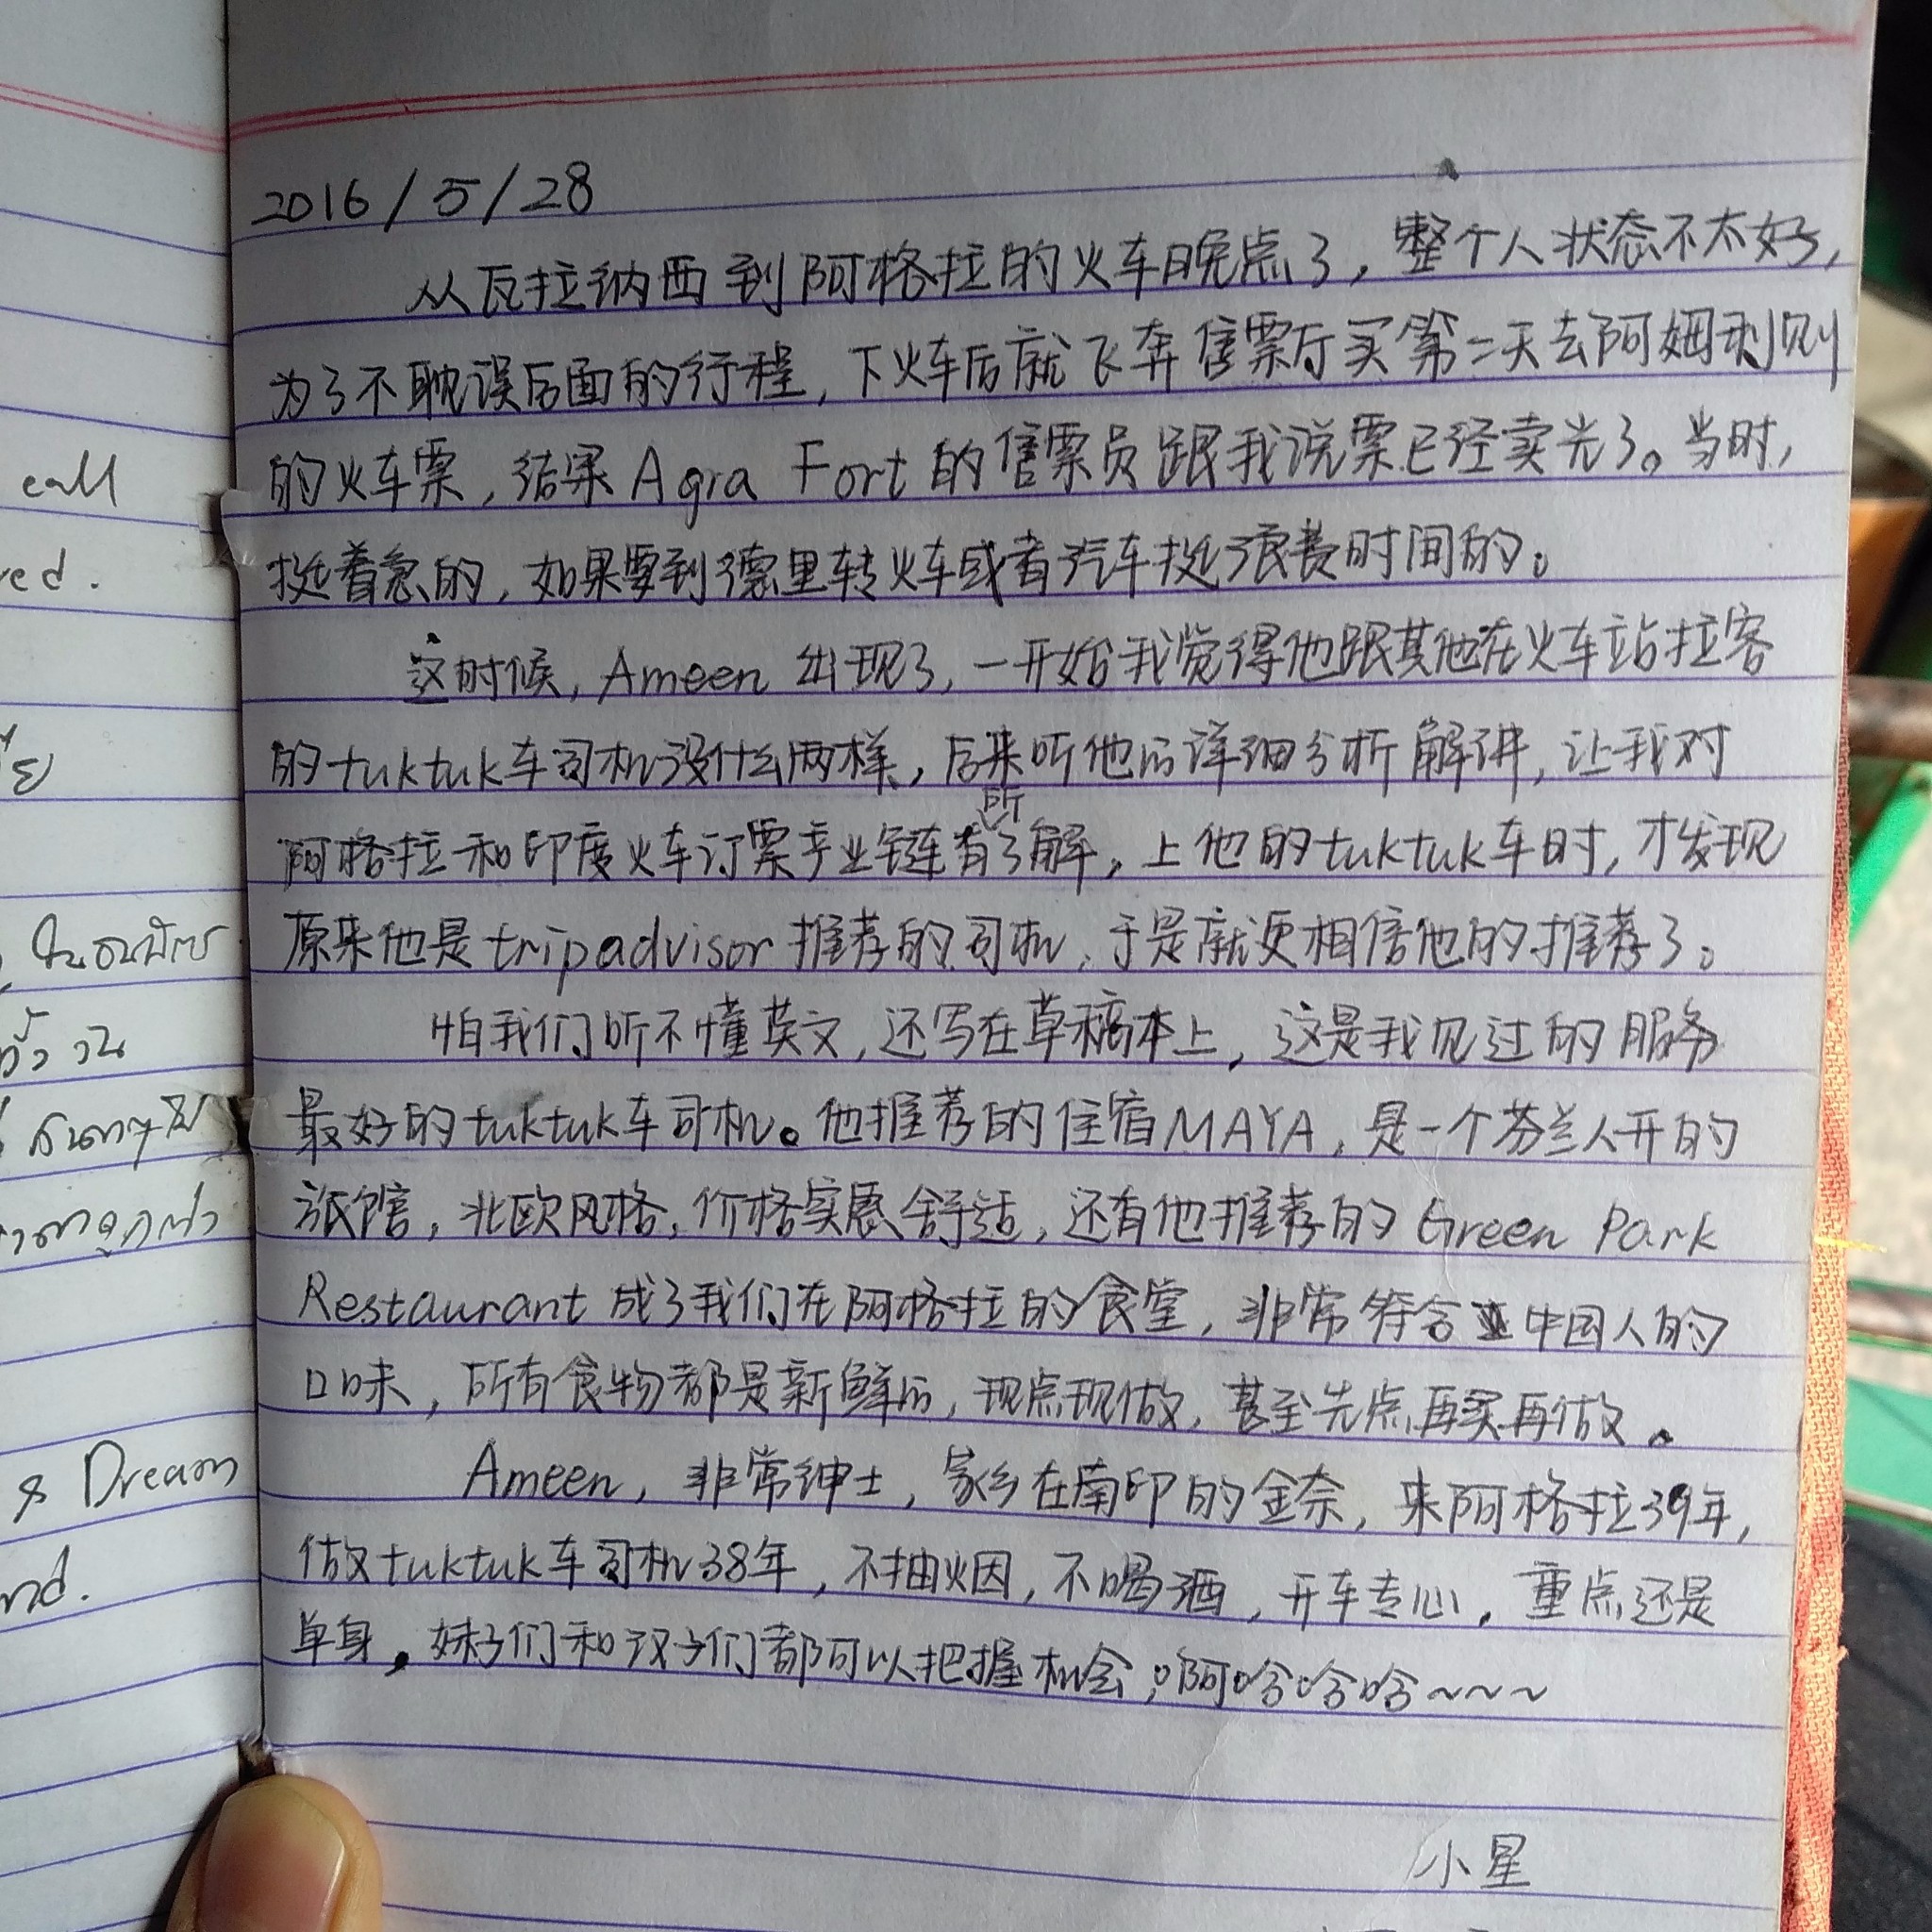 2016/5/28
从瓦拉纳西到阿格拉的火车晚点了,整个人状态不太好,
为了不耽误后面的行程,下火车后就飞奔售票厅买第二天去阿姆利则
的火车票,结果Agra Fort的售票员跟我说票已经卖光了。当时,
挺着急的,如果要到德里转火车或者汽车挺浪费时间的。
这时候,Ameen出现了,一开始我觉得他跟其他在火车站拉客
的tuktuk车司机没什么两样,后来听他的详细分析解讲,让我对
阿格拉和印度火车订票产业链有所了解,上他的tuktuk车时,才发现
原来他是tripadvisor推荐的司机,于是就更相信他的推荐了。
怕我们听不懂英文,还写在草稿本上,这是我见过的服务
最好的tuktuk车司机。他推荐的住宿MAYA,是一个芬兰人开的
旅馆,北欧风格,价格实惠舒适,还有他推荐的Green Park
Restaurant成了我们在阿格拉的食堂,非常符合中国人的
口味,所有食物都是新鲜的,现点现做,甚至先点再买再做。
Ameen,非常绅士,家乡在南印的金奈,来阿格拉39年,
做tuktuk车司机38年,不抽烟,不喝酒,开车专心,重点还是
单身,妹子们和汉子们都可以把握机会,啊哈哈哈~~~
小星
call
red.
& Dream
nd.